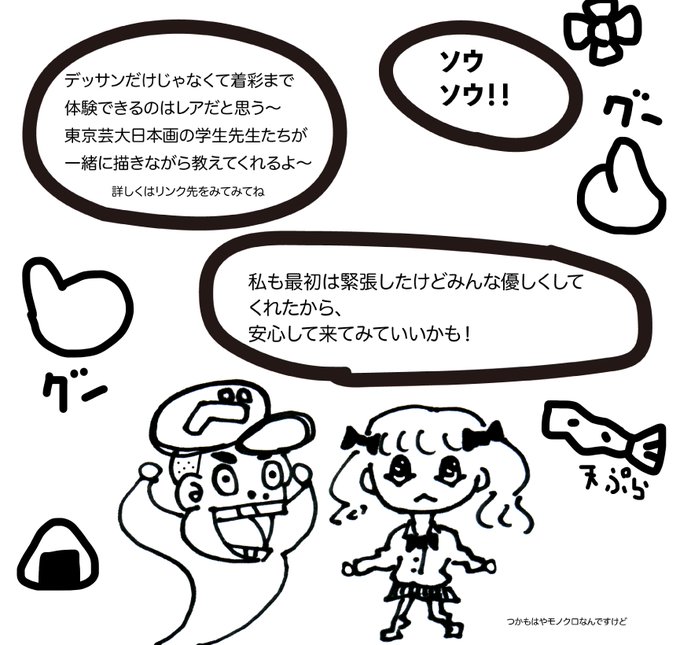 デッサンだけじゃなくて着彩まで
体験できるのはレアだと思う〜
東京芸大日本画の学生先生たちが
一緒に描きながら教えてくれるよ〜
詳しくはリンク先をみてみてね
ソウ
ソウ!!
グー
私も最初は緊張したけどみんな優しくして
くれたから、
安心して来てみていいかも！
グー
天ぷら
つかもはやモノクロなんですけど